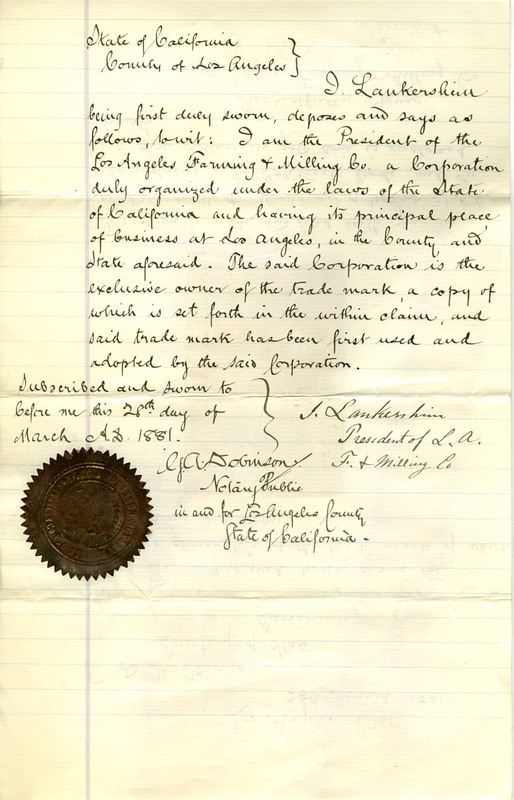 State of California
County of Los Angeles
I. Lankershim
being first duly sworn, deposes and says as
follows, to wit: I am the President of the
Los Angeles Farming & Milling Co. a Corporation
duly organized under the laws of the State
of California and having its principal place
of business at Los Angeles, in the County and
State aforesaid. The said Corporation is the
exclusive owner of the trade mark, a copy of
which is set forth in the within claim, and
said trade mark has been first used and
adopted by the said Corporation.
Subscribed and sworn to
before me this 28th day of
March A.D. 1881.
I. Lankershim
President of L. A.
F. & Milling Co
Robinson
Notary Public
in and for Los Angeles County
State of California -